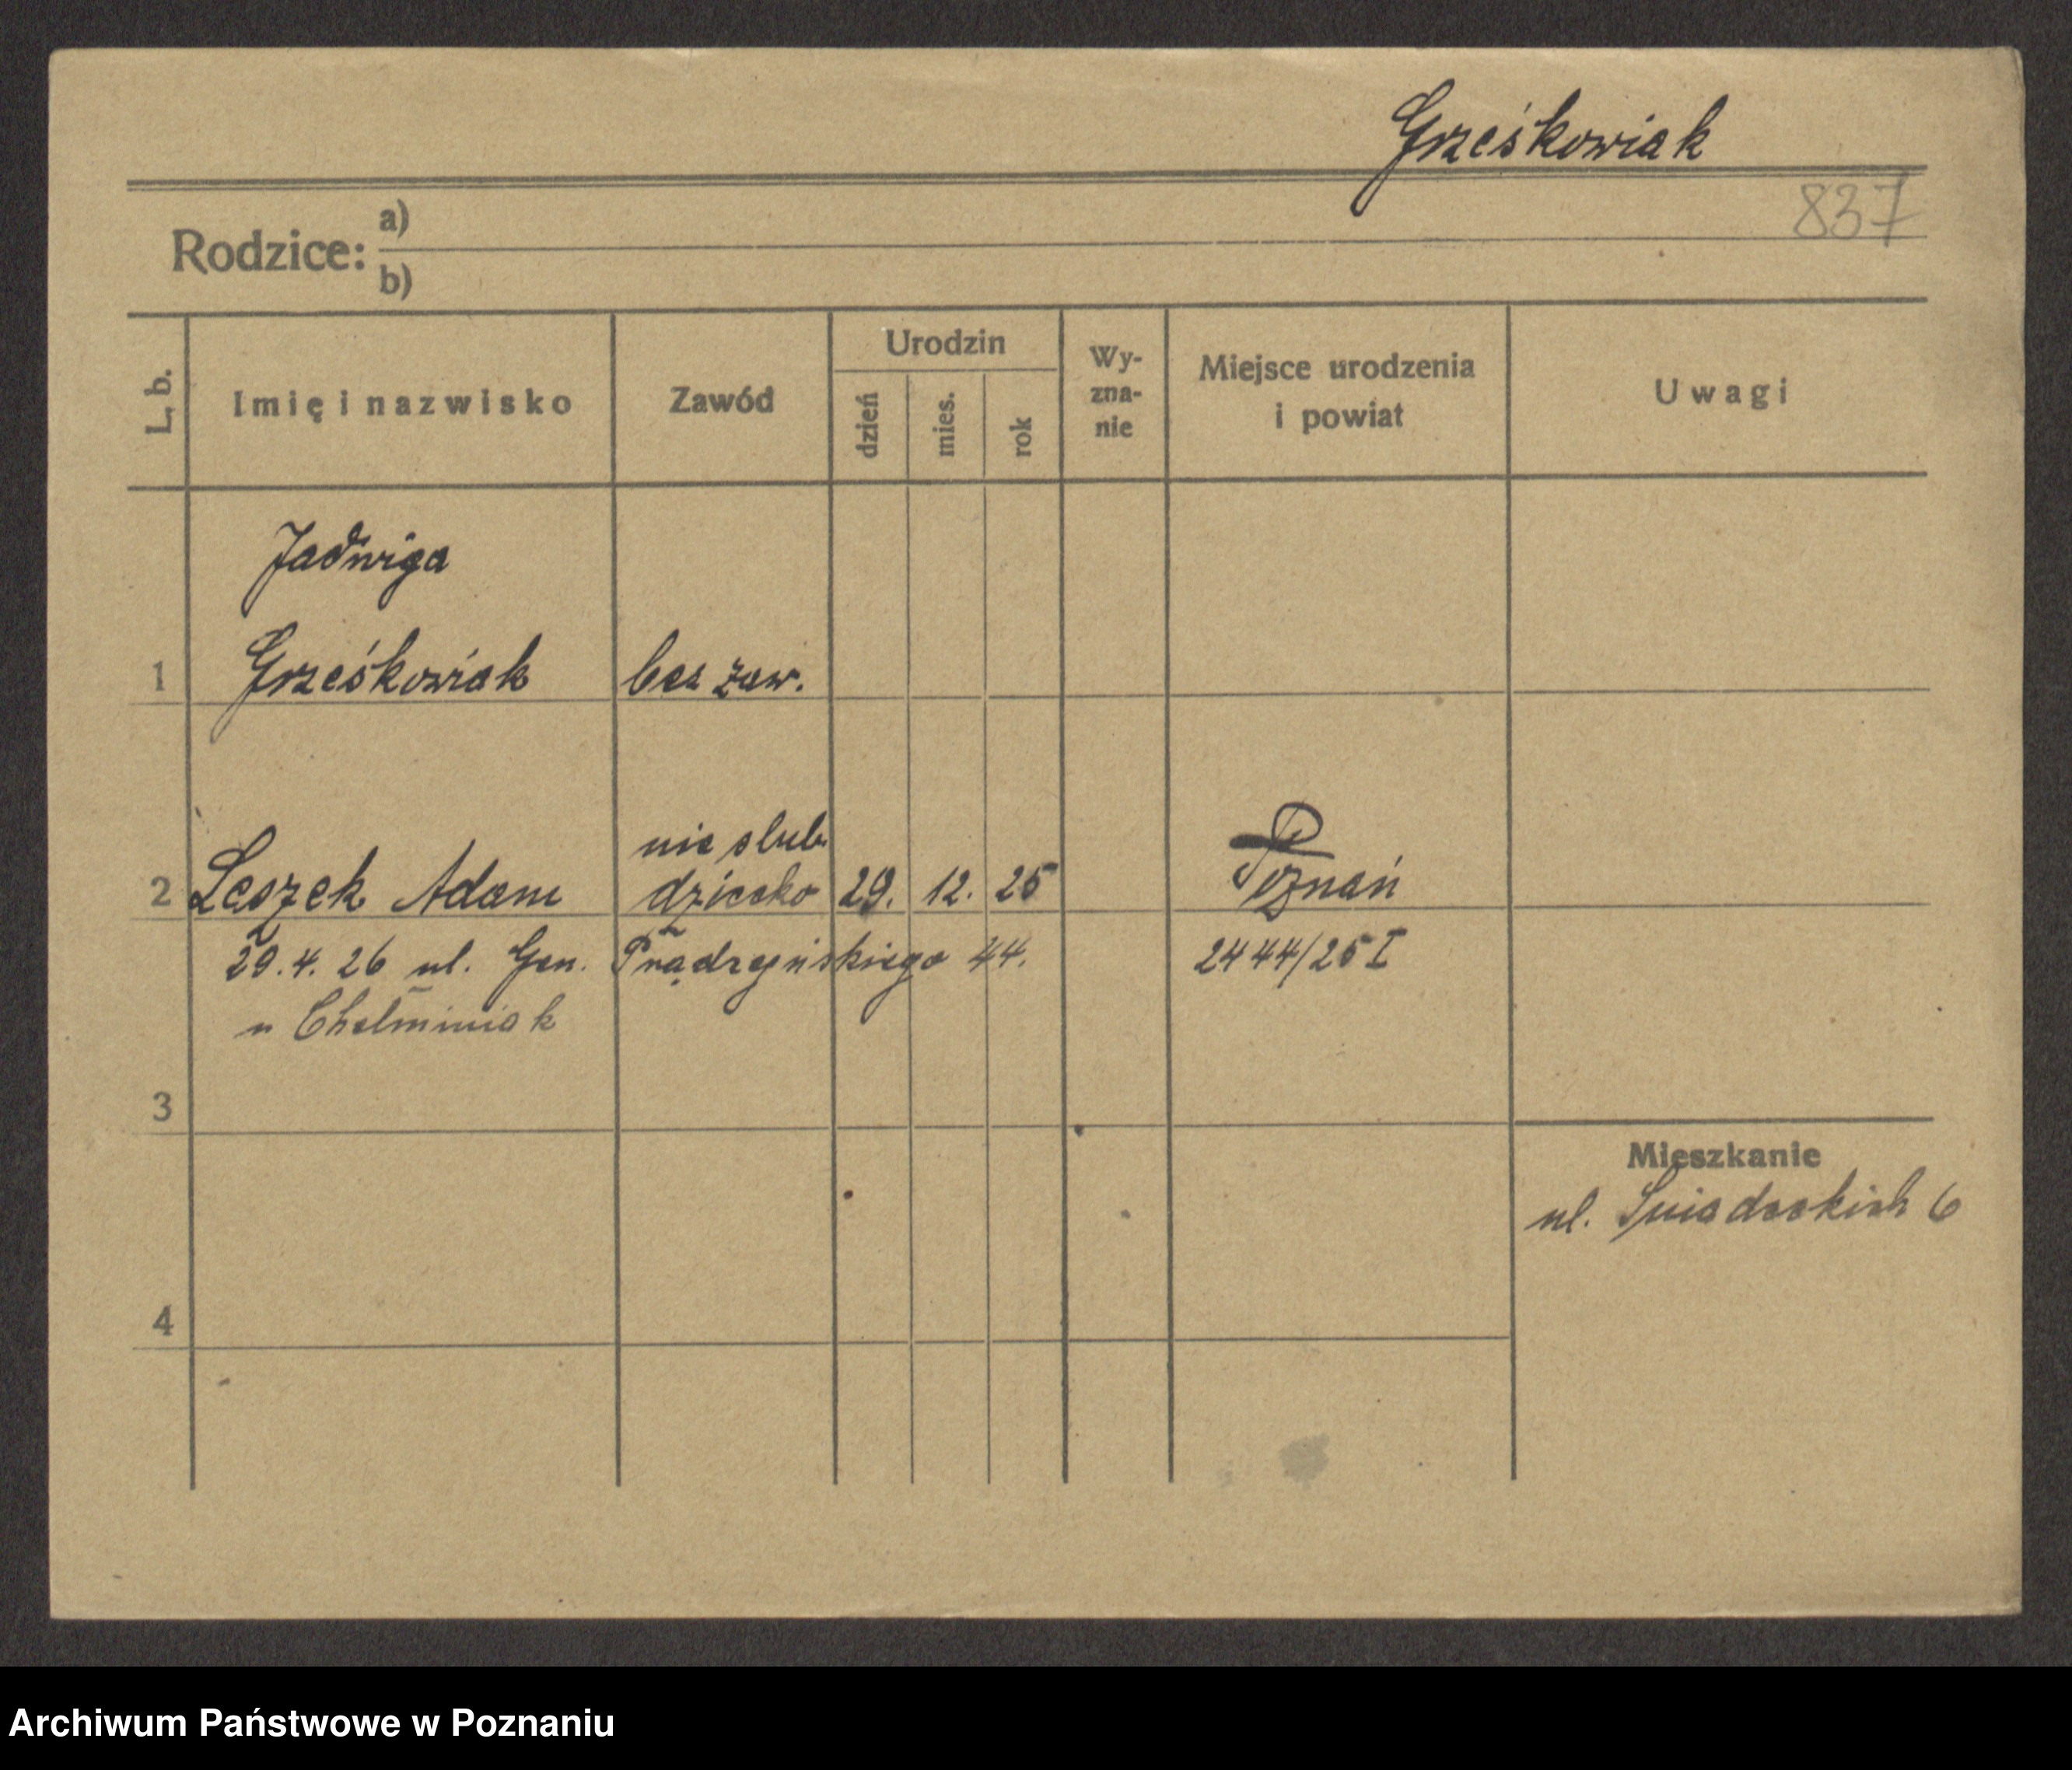 Grześkowiak
837
Rodzice: a)
b)
L. b.
Imię i nazwisko
Zawód
Urodzin
dzień
mies.
rok
Wy-
zna-
nie
Miejsce urodzenia
i powiat
Uwagi
Jadwiga
1 Grześkowiak bez zaw.
nieślub.
2 Leszek Adam dziecko 29. 12. 25 Poznań
29.4.26 ul. Gen. Prądzyńskiego 44. 2444/25 I
u Chełminiak
3
Mieszkanie
ul. Śniadeckich 6
4
Archiwum Państwowe w Poznaniu